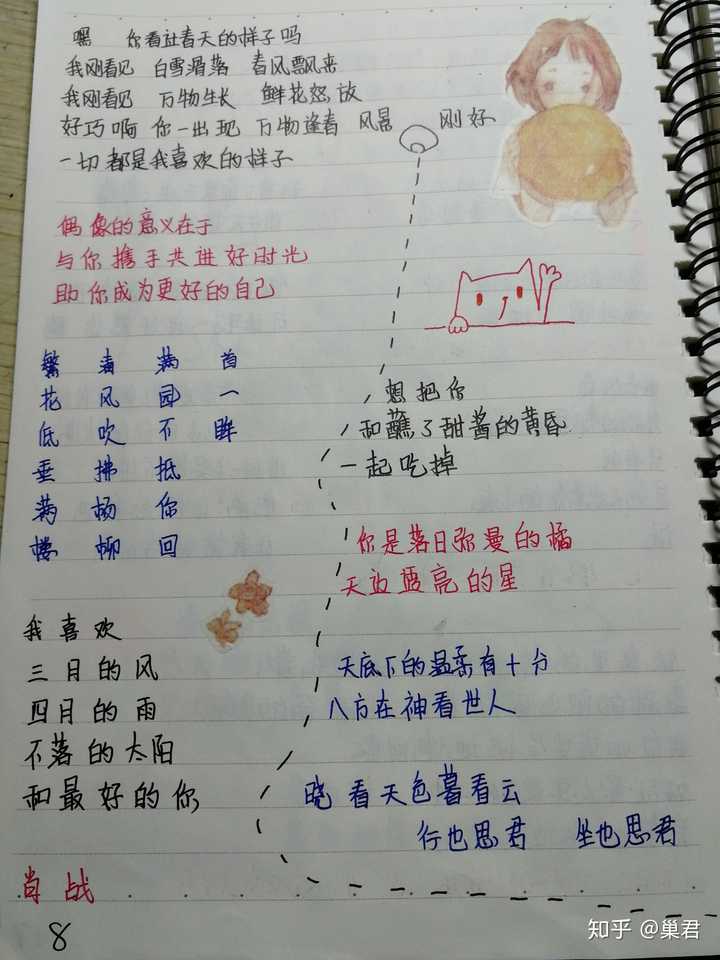 嘿 你看过春天的样子吗
我刚看见 白雪滑落 春风飘来
我刚看见 万物生长 鲜花怒放
好巧啊 你一出现 万物逢春 风景 刚好
一切都是我喜欢的样子
偶像的意义在于
与你携手共进好时光
助你成为更好的自己
繁 清 满 首
花 风 园 一
低 吹 不 眸
垂 拂 抵
满 杨 你
楼 柳 回
想把你
和蘸了甜酱的黄昏
一起吃掉
你是落日弥漫的橘
天边蓝亮的星
我喜欢
三月的风
四月的雨
不落的太阳
和最好的你
天底下的温柔有十分
八方在神看世人
晓看天色暮看云
行也思君 坐也思君
肖战
8
知乎 @巢君